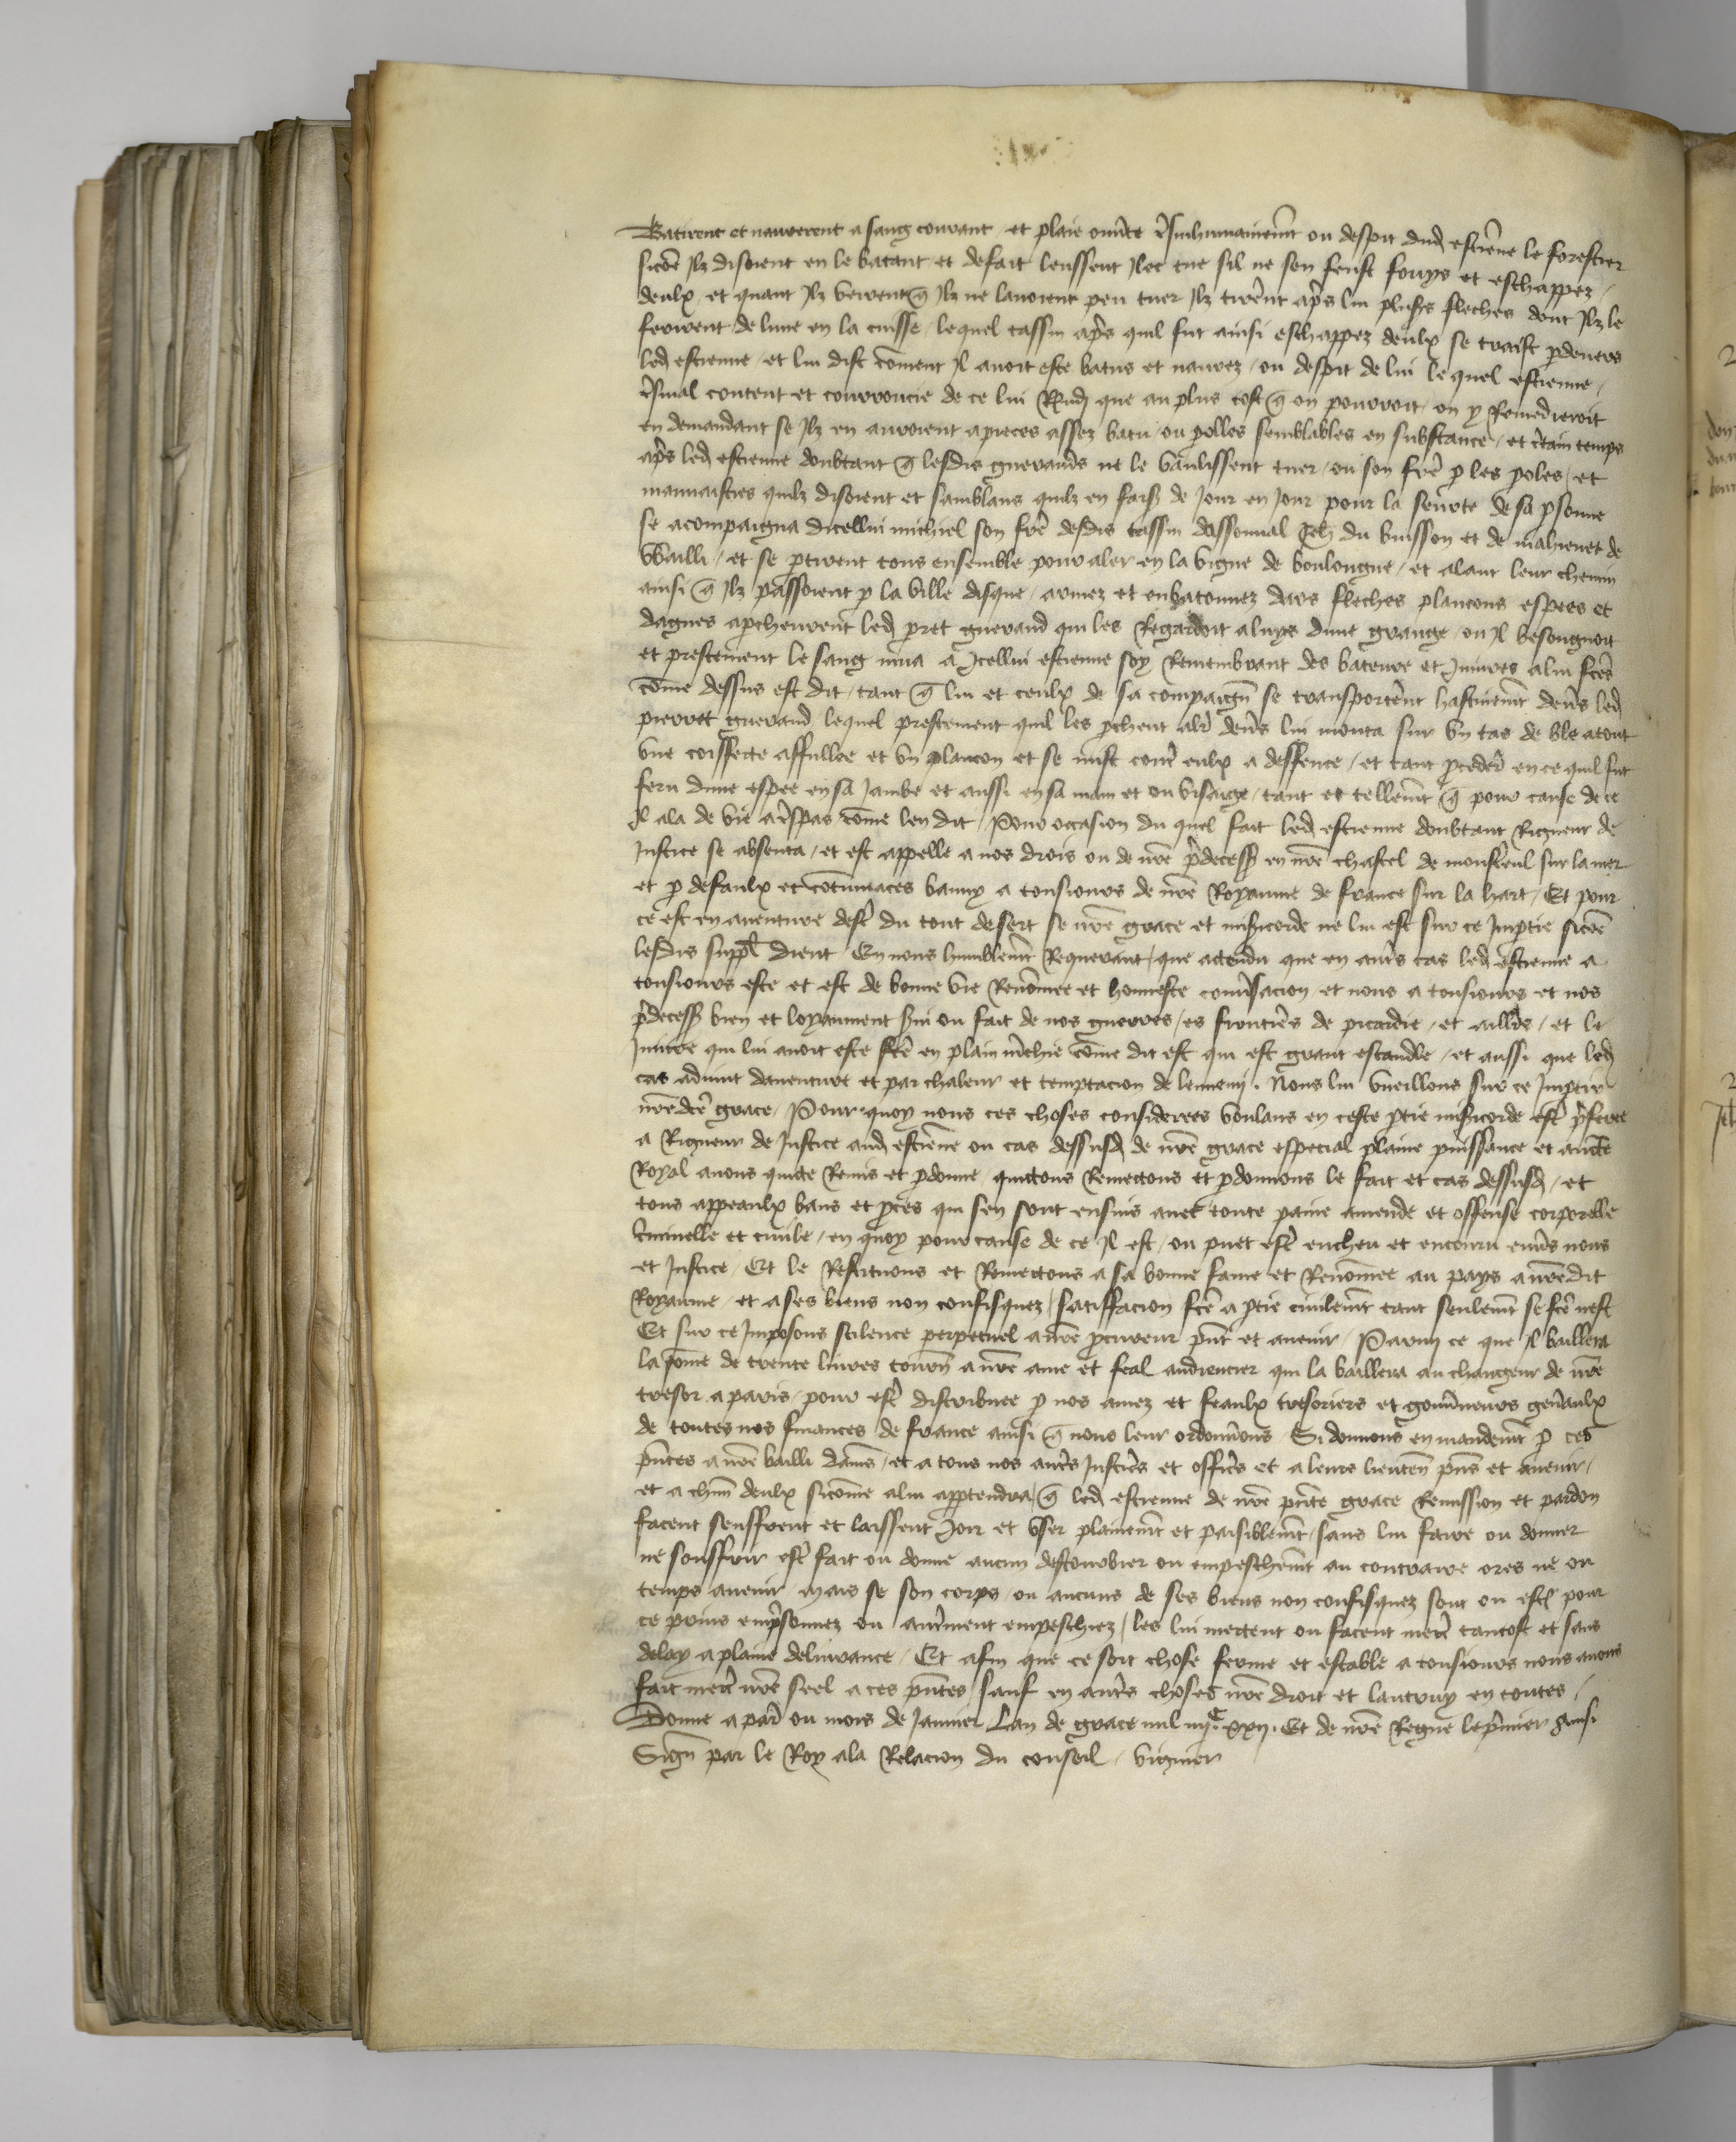 Batirent et navrerent a sang courant et plaie ouv̄te t̄sinhumainem̄t ou despit dud estiēne le forestier
sicōe Ilz disoient en le batant et de fait leussent Ilec tue sil ne sen feust fouys et eschappez
deulx et quant Ilz veirent q̄ Ilz ne lavoient peu tuer Ilz tirēnt ap̄s lui plus̄s fleches dont Ilz le
ferirent de lune en la cuisse lequel cassin ap̄s quil fut ainsi eschappez deulx se traist p devers
led estienne et lui dist cōment Il avoit este batus et navrez ou despit de lui lequel estienne
t̄smal content et courroucie de ce lui R̄nd que au plus tost q̄ on pourroit on y Remedieroit
en demandant se Ilz en auroient apieces assez batu ou polles semblables en substance et c̄tain temps
ap̄s led estienne doubtant q̄ lesdis guerands ne le vaulissent tuer ou son frē p les poles et
mauvaisties quilz disoient et samblans quilz en fais de Jour en Jour pour la seur̄te de sa p̄sonne
se acompaigna dicellui michiel son frē desdis cassin dassonval Jeh du buisson et de mahienet de
Wailli et se p̄tirent tous ensemble pour aler en la vigne de boulongne et alant leur chemin
ainsi q̄ Ilz passoient p la ville disque armez et enbatonnez darcs fleches plancons espees et
dagues ap̄cheurent led p̄ret guerand qui les Regardoit a luys dune grange ou Il besongnoit
et prestement le sang mua a Icellui estienne soy Remembrant des bateure et Iniures a lui fc̄es
cōme dessus est dit tant q̄ lui et ceulx de sa compaign̄ se transportēnt hastivem̄t dev̄s led
pierret guerand lequel prestement quil les p̄cheut aler dev̄s lui monta sur vn tas de ble atout
vne coiffecte affullee et vn plancon et se mist cont̄ eulx a deffence et tant p̄ceder̄ en ce quil fut
feru dune espee en sa Jambe et aussi en sa main et ou visaige tant et tellem̄t q̄ pour cause de ce
Il ala de vie a t̄spas cōme len dit Pour occasion du quel fait led estienne doubtant Rigueur de
Justice se absenta et est appelle a nos drois ou de nr̄e p̄decess̄ en nr̄e chastel de monst̄eul sur la mer
et p defaulx et cōtumaces banny a tousiours de nr̄e Royaume de france sur la hart Et pour
ce est en aventure dest̄ du tout desert se nr̄e grace et mis̄icorde ne lui est sur ce Imp̄tie sicōe
lesdis supp̄l dient En nous humblem̄t Requerant que actendu que en aut̄s cas led estienne a
tousiours este et est de bonne vie Renōmee et honneste conv̄sacion et nous a tousiours et nos
p̄decess̄ bien et loyaument s̄vi ou fait de nos guerres es frontiēs de picardie et aill̄rs et le
Iniure qui lui avoit este fc̄e en plain m̄chie cōme dit est qui est grant escandle et aussi que led
cas advint daventure et par chaleur et temptacion de lennemi Nous lui vueillons sur ce Imp̄tir
nr̄ed̄ce grace Pour quoy nous ces choses considerees voulans en ceste p̄tie mis̄icorde est̄ p̄feree
a Rigueur de Justice aud estiēne ou cas dessusd de nr̄e grace especial plaine puissance et auct̄e
Royal avons quicte Remis et p̄donne quictons Remectons et p̄donnons le fait et cas dessusd et
tous appeaulx bans et p̄ces qui sen sont ensuis avec toute paine amende et offense corporelle
c̄minelle et civile en quoy pour cause de ce Il est ou puet est̄ encheu et encouru env̄s nous
et Justice Et le Restituons et Remectons a sa bonne fame et Renōmee au pays a nr̄edit
Royaume et a ses biens non confisquez satisfacion fc̄e a p̄tie civilem̄t tant seulem̄t se fc̄e nest
Et sur ce Imposons scilence perpetuel a nr̄e p̄cureur p̄nt et avenir Parmy ce que Il baillera
la sōme de trente livres tourn̄ a nr̄e ame et feal audiencier qui la baillera au changeur de nr̄e
tresor a paris pour est̄ distribuee p nos amez et feaulx tresoriers et gouv̄neurs gen̄aulx
de toutes nos finances de france ainsi q̄ nous leur ordonn̄ons Si donnons en mandem̄t p ces
p̄ntes a nr̄e bailli damiēs et a tous nos aut̄s Justic̄rs et offic̄rs et a leurs lieuten̄ p̄ns et avenir
et a chūn deulx sicōme a lui app̄tendra q̄ led estienne de nr̄e p̄nte grace Remission et pardon
facent seuffrent et laissent Joir et vser plainem̄t et paisiblem̄t sans lui faire ou donner
ne souffrir est̄ fait ou donne aucun destourbier ou empeschem̄t au contraire ores ne ou
temps avenir mais se son corps ou aucuns de ses biens non confisquez sont ou est̄ pour
ce prins emp̄sonnez ou aut̄ment empeschiez les lui mectent ou facent mect̄ tantost et sans
delay a plaine delivrance Et afin que ce soit chose ferme et estable a tousiours nous avons
fait mect̄ nr̄e seel a ces p̄ntes sauf en aut̄s choses nr̄e droit et lautruy en toutes
Donne a par̄ ou mois de Janvier Lan de grace mil iiijC xxij Et de nr̄e Regne le p̄mier Ainsi
Sign̄ par le Roy a la Relacion du conseil vignier